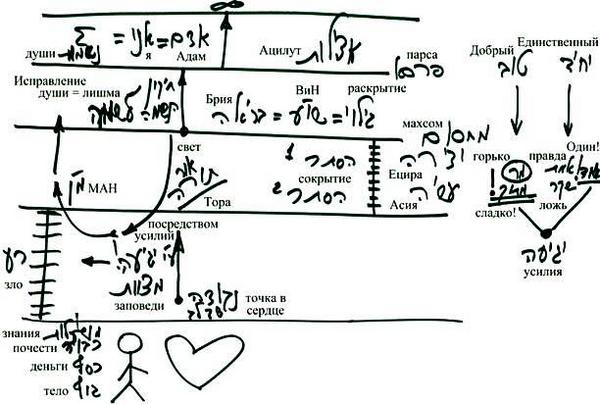 ∞
души נשמות Σ = אני = אדם
я Адам
Ацилут אצילות
парса
פרסא
Добрый
טוב
Единственный
יחיד
Исправление
души = лишма
תיקון
Брия ВиН раскрытие
בריאה = = גילוי
махсом
מחסום
свет
אור
תורה
Тора
1 הסתר
сокрытие
2 הסתר
יצירה
Ецира
עשיה
Асия
горько
מר
מתוק
сладко!
правда
אמת
שקר
ложь
Один!
МАН
מ"ן
посредством
усилий
ע"י יגיעה
מצוות
заповеди
רע
зло
נקודה
שבלב
точка в
сердце
יגיעה
усилия
знания
почести כבוד
деньги כסף
тело גוף